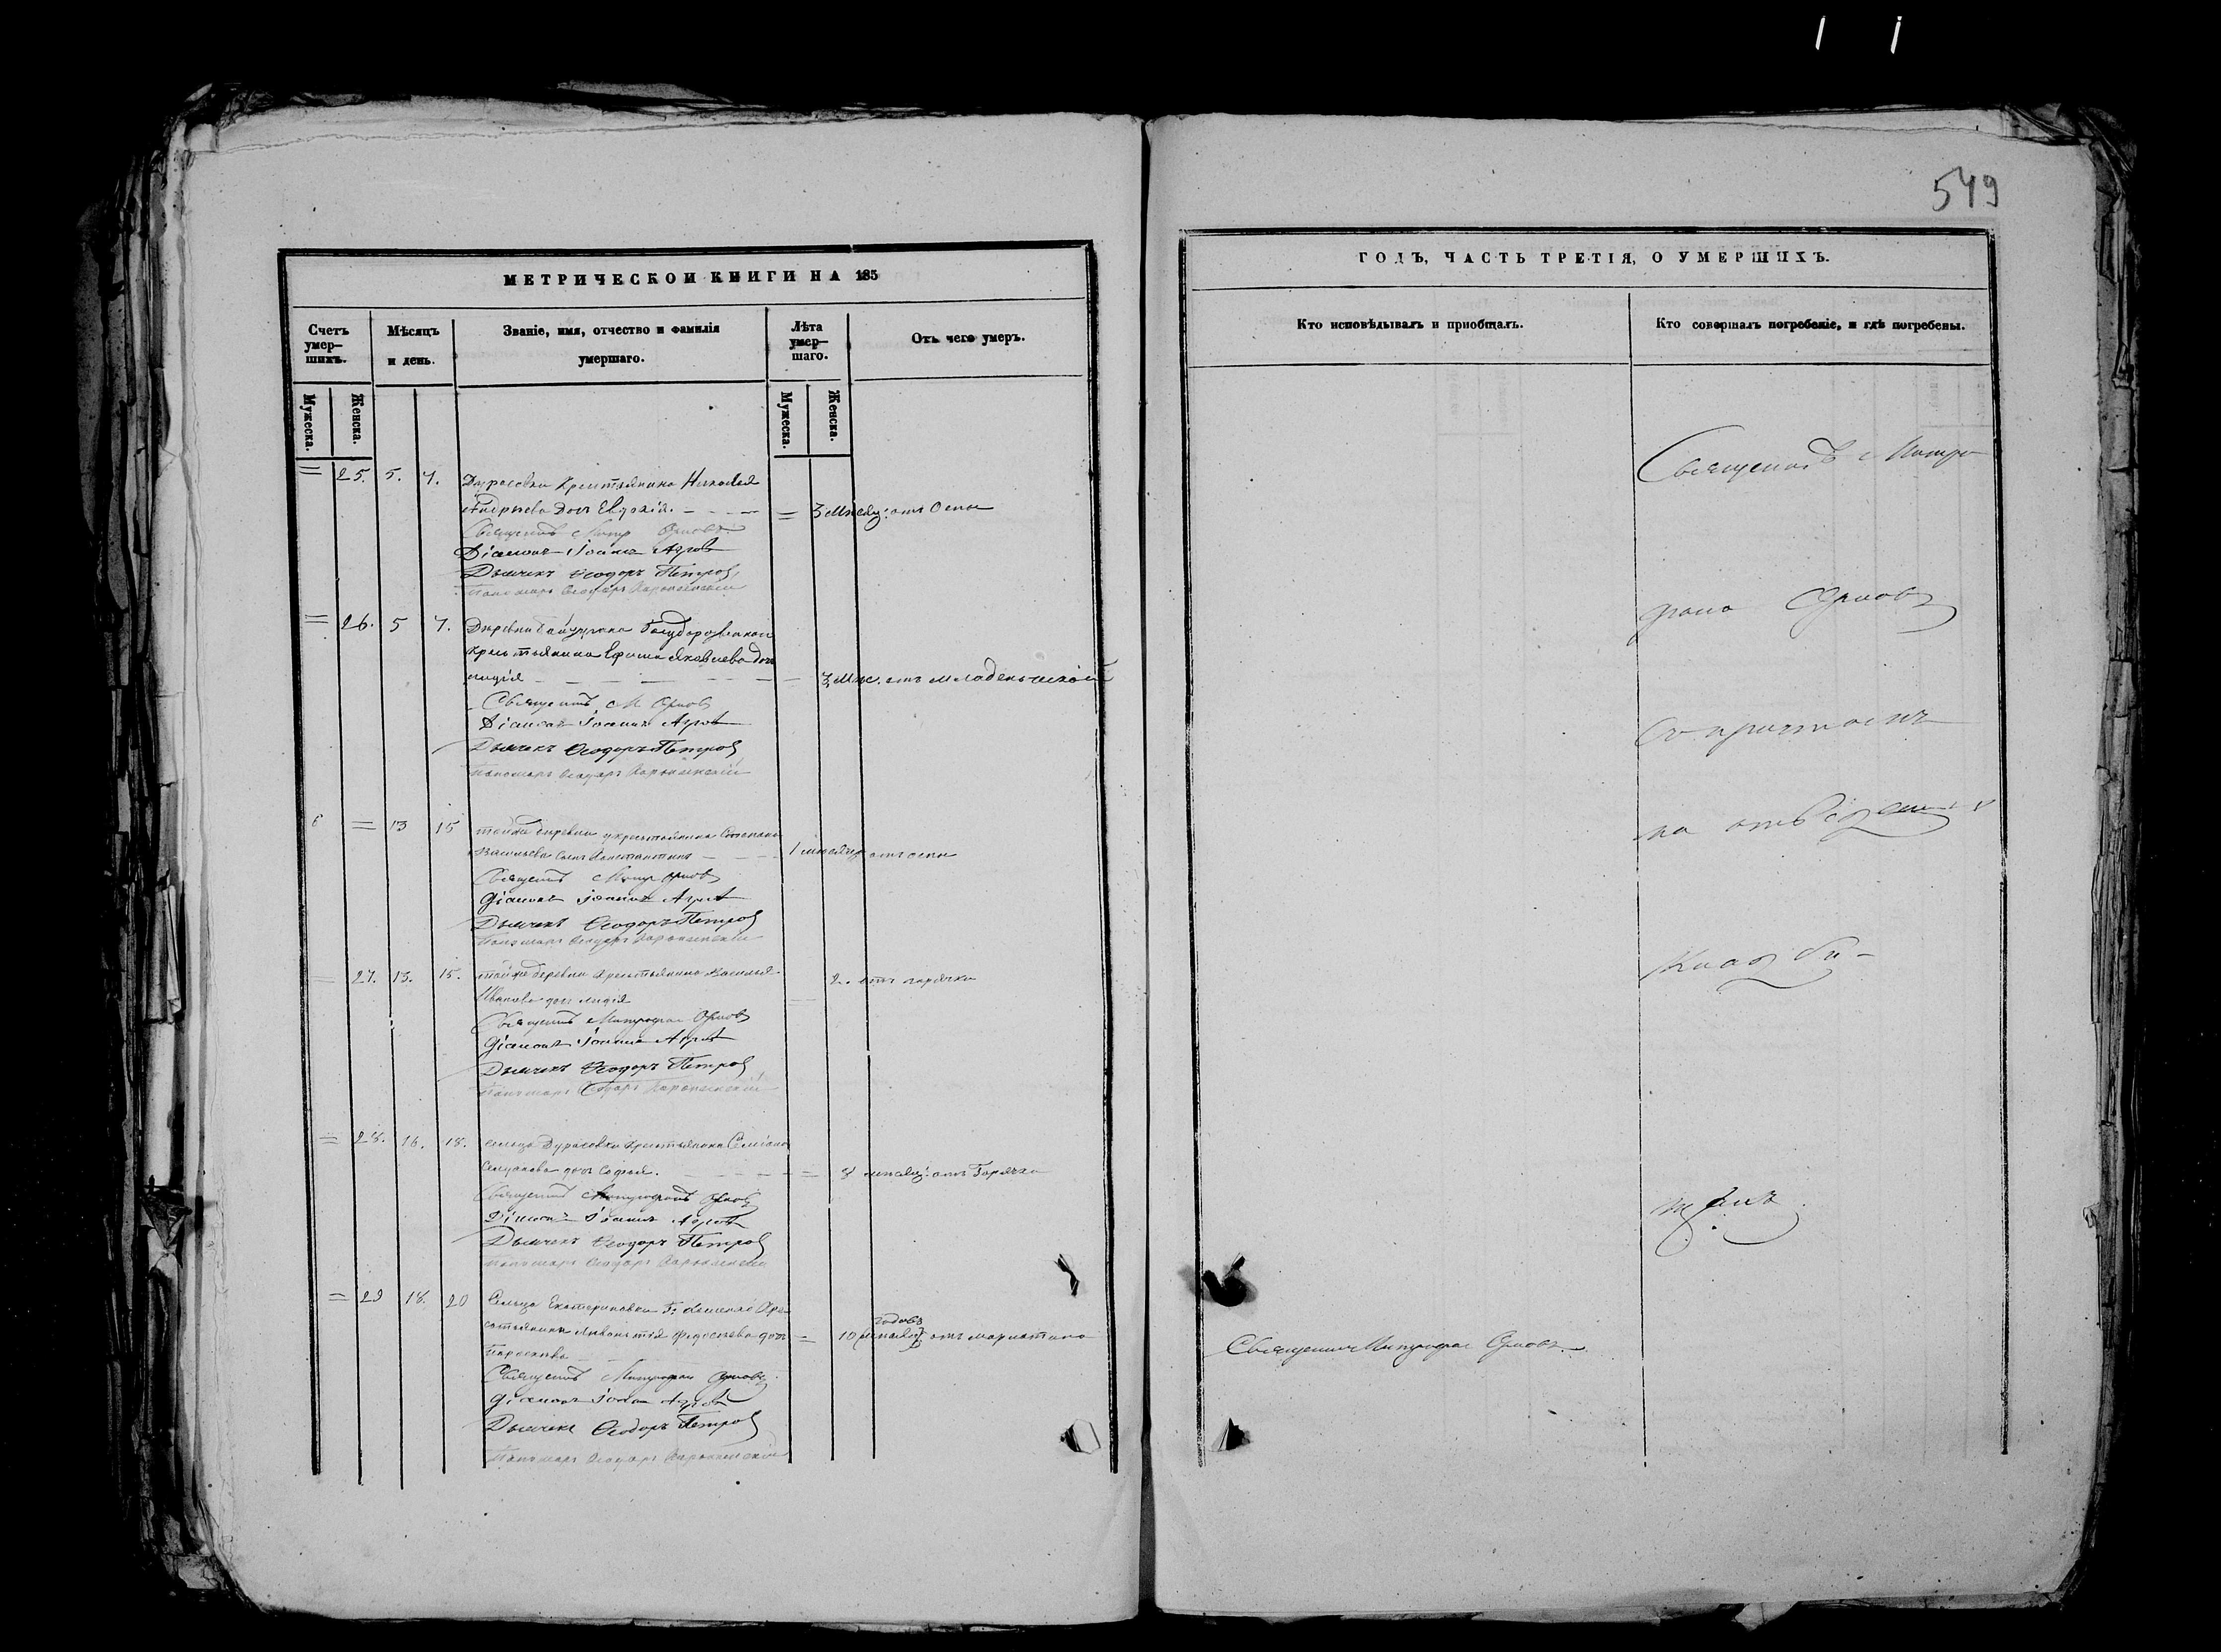 549
МЕТРИЧЕСКОЙ КНИГИ НА 185
Счетъ умер-шихъ.
Мѣсяцъ и день.
Званіе, имя, отчество и фамилія умершаго.
Лѣта умер-шаго.
Отъ чего умеръ.
Мужеска.
Женска.
Мужеска.
Женска.
= 25. 5. 7. Дурасовки Крестьянина Николая
Андреева дочь Евдокія. = 3 Мѣсяц: отъ Оспы
Священникъ Митр Орловъ
Діаконъ Іоаннъ Агровъ
Дьячекъ Ѳеодоръ Петровъ
Пономарь Ѳеодоръ
= 26. 5 7. Деревни Государственнаго
крестьянина Ефима Яковлева дочь
Лидія 3 Мѣс. отъ младенческой
Священникъ М Орловъ
Діаконъ Іоаннъ Агровъ
Дьячекъ Ѳеодоръ Петровъ
Пономарь Ѳеодоръ
6 = 13 15 тойже деревни крестьянина Степана
Васильева сынъ Константинъ 1 мѣсяцъ отъ оспы
Священникъ Митр Орловъ
Діаконъ Іоаннъ Агровъ
Дьячекъ Ѳеодоръ Петровъ
Пономарь Ѳеодоръ
= 27. 13. 15. тойже деревни Крестьянина Василья
Иванова дочь Лидія 2. отъ горячки
Священникъ Митрофанъ Орловъ
Діаконъ Іоаннъ Агровъ
Дьячекъ Ѳеодоръ Петровъ
Пономарь Ѳеодоръ
= 28. 16. 18. сельца Дурасовки Крестьянина
дочь Софья. = 8 мѣсяц: отъ Горячки
Священникъ Митрофанъ Орловъ
Діаконъ Іоаннъ Агровъ
Дьячекъ Ѳеодоръ Петровъ
Пономарь Ѳеодоръ
= 29 18. 20 Сельца Екатериновки Г: Кре-
стьянина Федосѣева дочь = 10 (мѣсяц) годовъ отъ
Параскева
Священникъ Митрофанъ Орловъ
Діаконъ Іоаннъ Агровъ
Дьячекъ Ѳеодоръ Петровъ
Пономарь Ѳеодоръ
ГОДЪ, ЧАСТЬ ТРЕТІЯ, О УМЕРШИХЪ.
Кто исповѣдывалъ и пріобщалъ.
Кто совершалъ погребеніе, и гдѣ погребены.
Священникъ Митро
фанъ Орловъ
Съ причтомъ
на отведенныхъ
Кладби-
щахъ.
Священникъ Митрофанъ Орловъ.